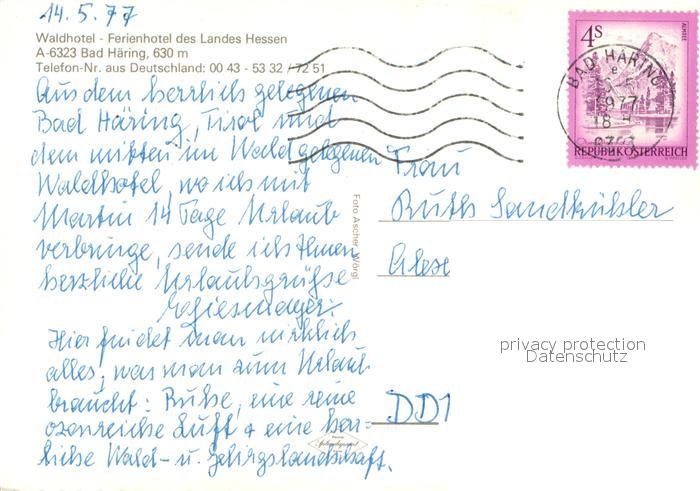 14.5.77
Waldhotel - Ferienhotel des Landes Hessen
A-6323 Bad Häring, 630 m
Telefon-Nr. aus Deutschland: 00 43 - 53 32 / 72 51
Aus dem herrlich gelegenen
Bad Häring, Tirol und
dem mitten im Wald gelegenen
Waldhotel, wo ich mit
Martin 14 Tage Urlaub
verbringe, sende ich Ihnen
herzliche Urlaubsgrüße
Hier findet man wirklich
alles, was man zum Urlaub
braucht: Ruhe, eine reine
ozonreiche Luft + eine herr=
liche Wald- u. Gebirgslandschaft.
Foto Ascher Wörgl
4S
ALMSEE
REPUBLIK ÖSTERREICH
BAD HÄRING
e
1977
18
Frau
Ruth Sandkühler
privacy protection
Datenschutz